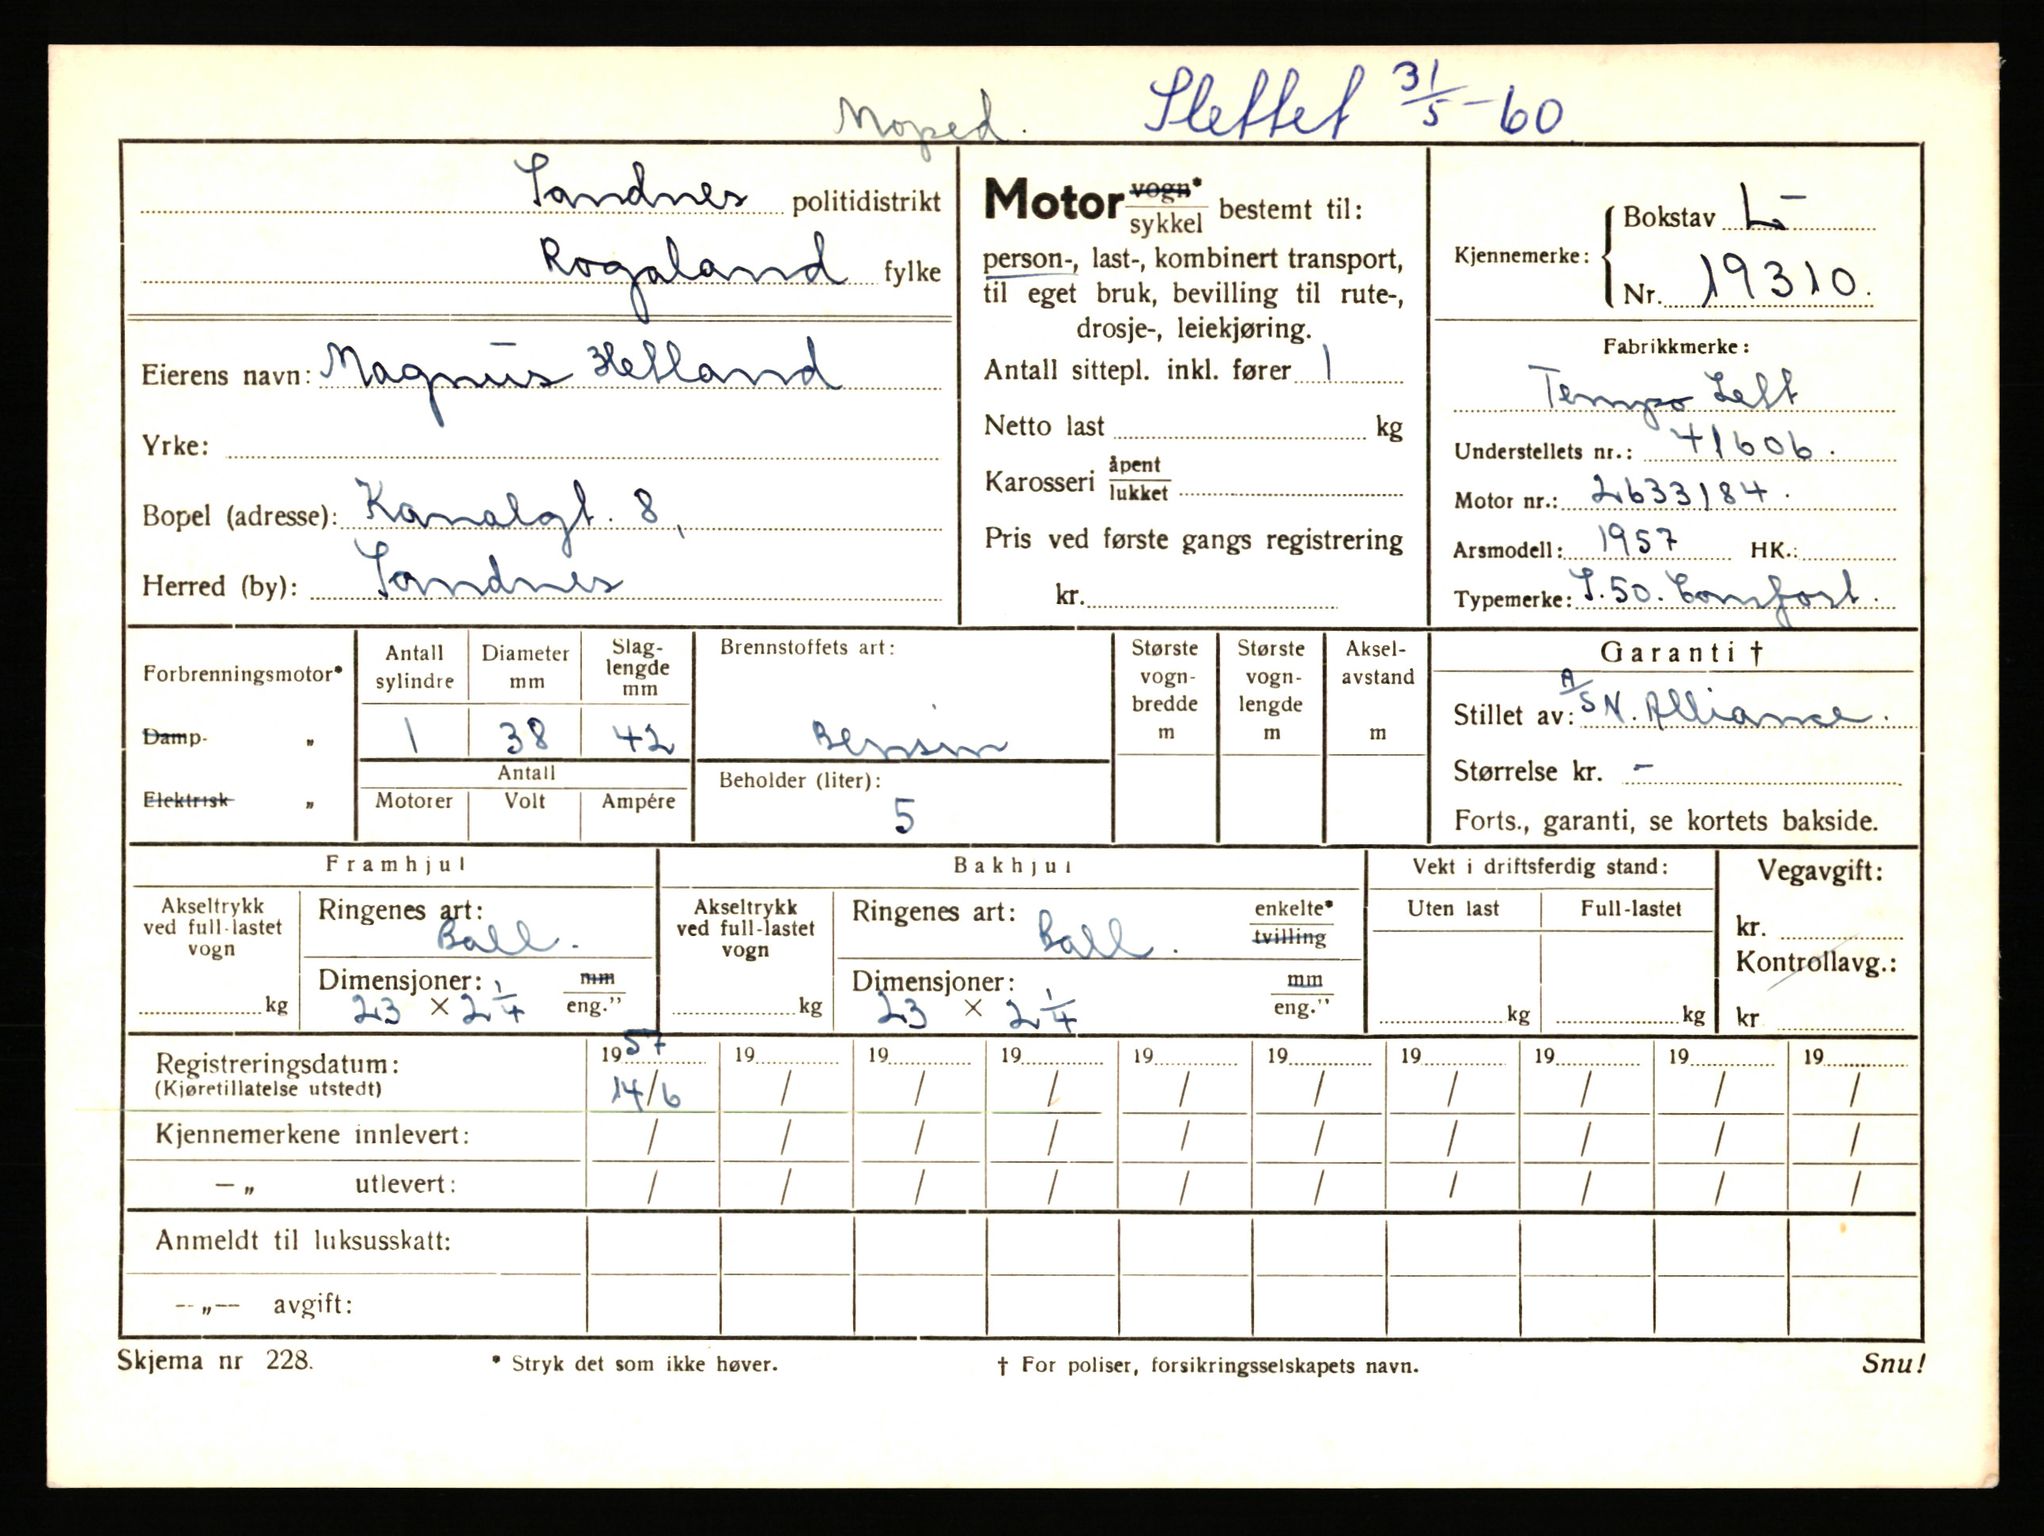 Moped. Slettet 31/5-60
Sandnes politidistrikt
Rogaland fylke
Eierens navn: Magnus Hetland
Yrke:
Bopel (adresse): Kanalgt. 8,
Herred (by): Sandnes
Motor vogn* / sykkel bestemt til:
person-, last-, kombinert transport,
til eget bruk, bevilling til rute-,
drosje-, leiekjøring.
Antall sittepl. inkl. fører 1
Netto last kg
Karosseri åpent / lukket
Pris ved første gangs registrering
kr.
Kjennemerke: Bokstav L-
Nr. 19310.
Fabrikkmerke:
Tempo Lett
Understellets nr.: 41606.
Motor nr.: 2633184.
Arsmodell: 1957 HK.:
Typemerke: S.50. Comfort.
Forbrenningsmotor*
Damp- „
Elektrisk „
Antall sylindre
Diameter mm
Slag-lengde mm
1 38 42
Antall
Motorer Volt Ampére
Brennstoffets art:
Bensin
Beholder (liter):
5
Største vogn-bredde m
Største vogn-lengde m
Aksel-avstand m
Garanti †
Stillet av: A/S N. Alliance.
Størrelse kr. -
Forts., garanti, se kortets bakside.
Framhjul
Akseltrykk ved full-lastet vogn
kg
Ringenes art:
Ball.
Dimensjoner: mm / eng."
23 × 2 1/4
Bakhjul
Akseltrykk ved full-lastet vogn
kg
Ringenes art: enkelte* / tvilling
Ball.
Dimensjoner: mm / eng."
23 × 2 1/4
Vekt i driftsferdig stand:
Uten last Full-lastet
kg kg
Vegavgift:
kr.
Kontrollavg.:
kr
Registreringsdatum: 1957 19 19 19 19 19 19 19 19 19
(Kjøretillatelse utstedt) 14/6 / / / / / / / / /
Kjennemerkene innlevert: / / / / / / / / / /
— „ utlevert: / / / / / / / / / /
Anmeldt til luksusskatt:
—„— avgift:
Skjema nr 228. * Stryk det som ikke høver. † For poliser, forsikringsselskapets navn. Snu!